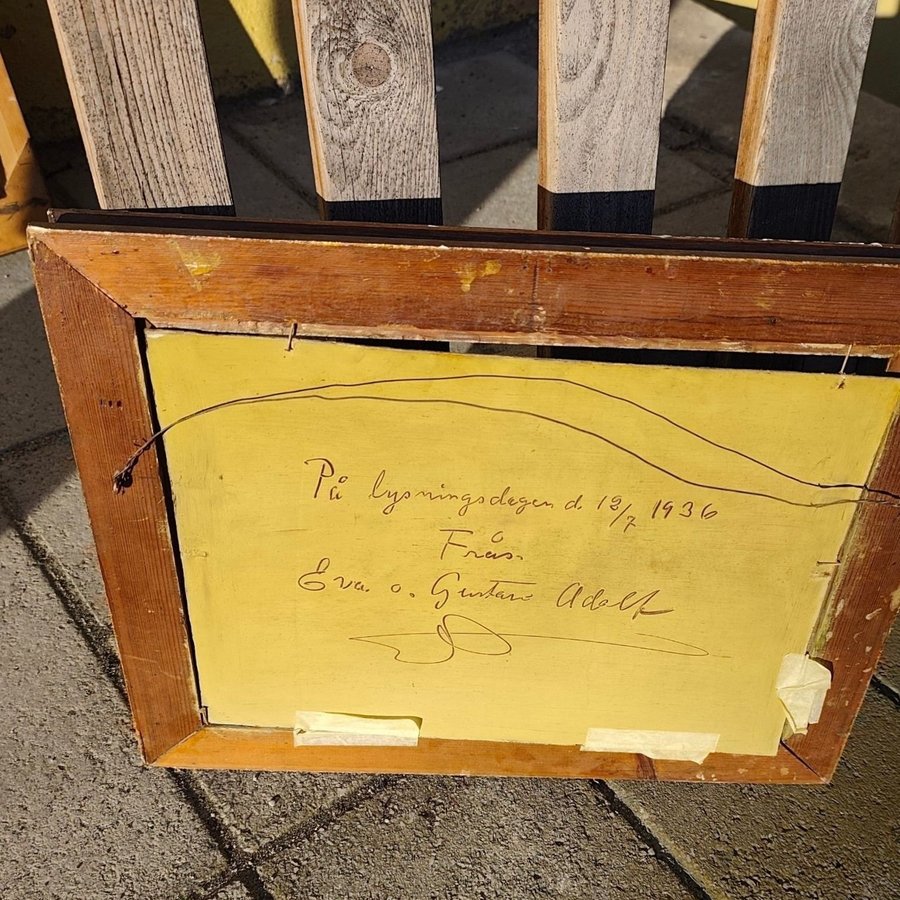 På lysningsdagen d. 12/7 1936
Från
Eva o. Gustav Adolf